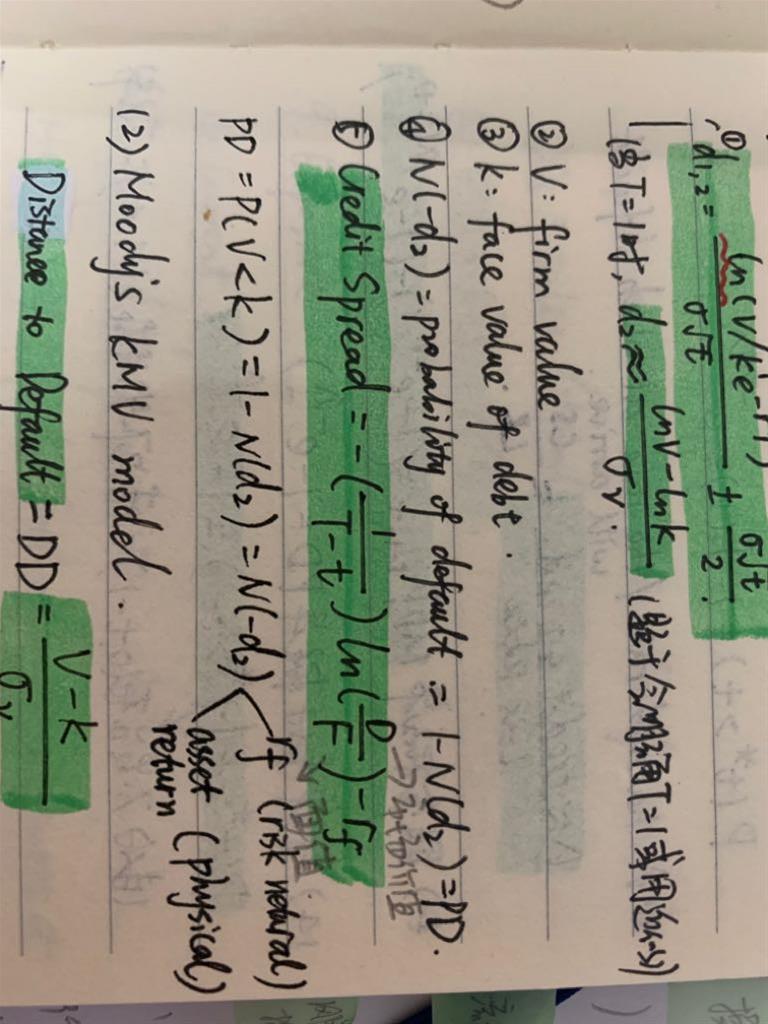 ① d₁,₂ = ln(V/ke⁻ʳᵀ) / σ√t ± σ√t / 2.
当T=1时, d₂ ≈ lnV-lnk / σv.
② V: firm value
③ k: face value of debt.
④ N(-d₂) = probability of default = 1-N(d₂) = PD.
⑤ Credit Spread = -(1/T-t) ln(D/F) - rf
→ 价值
→ 面值
PD = P(V<k) = 1-N(d₂) = N(-d₂)
rf (risk netural)
asset (physical)
return
(2) Moody's kMV model.
Distance to Default = DD = V-k / σv